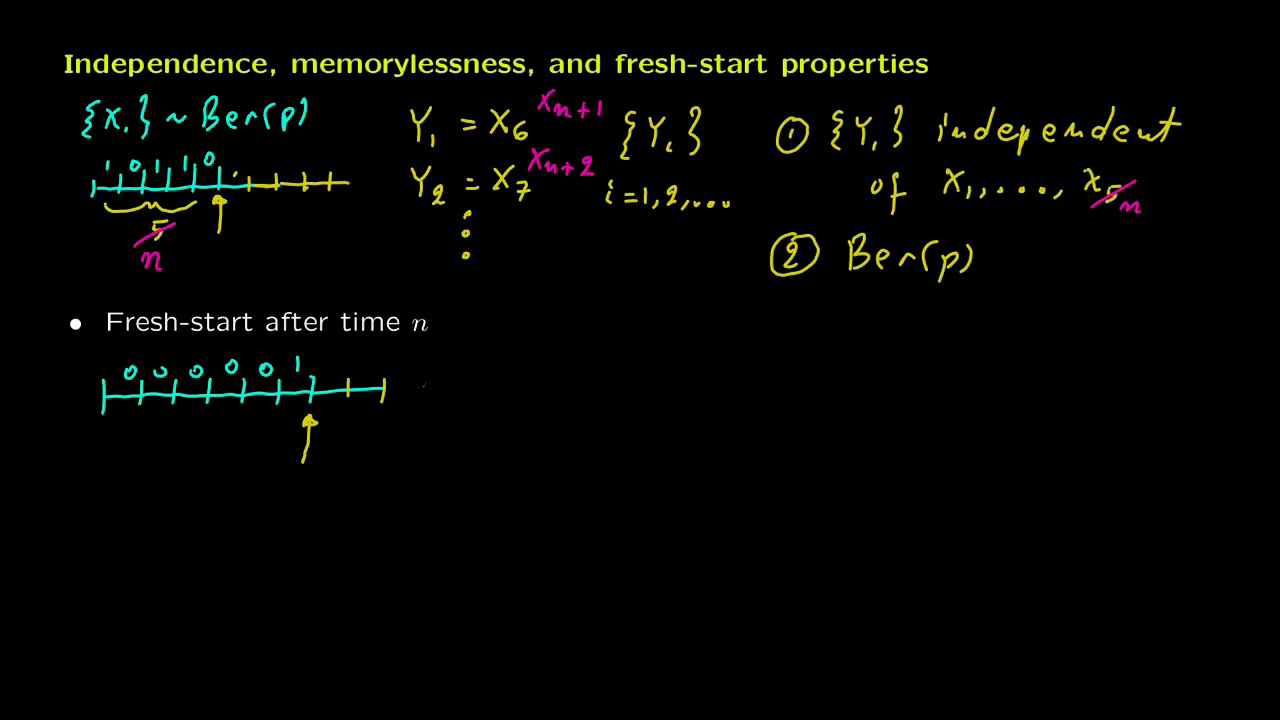 Independence, memorylessness, and fresh-start properties
{Xᵢ} ~ Ber(p)
1 0 1 1 0
5
n
Y₁ = X₆ Xₙ₊₁
Y₂ = X₇ Xₙ₊₂
⋮
{Yᵢ}
i = 1, 2, ...
① {Yᵢ} independent
of X₁, ..., X₅ n
② Ber(p)
• Fresh-start after time n
0 0 0 0 0 1